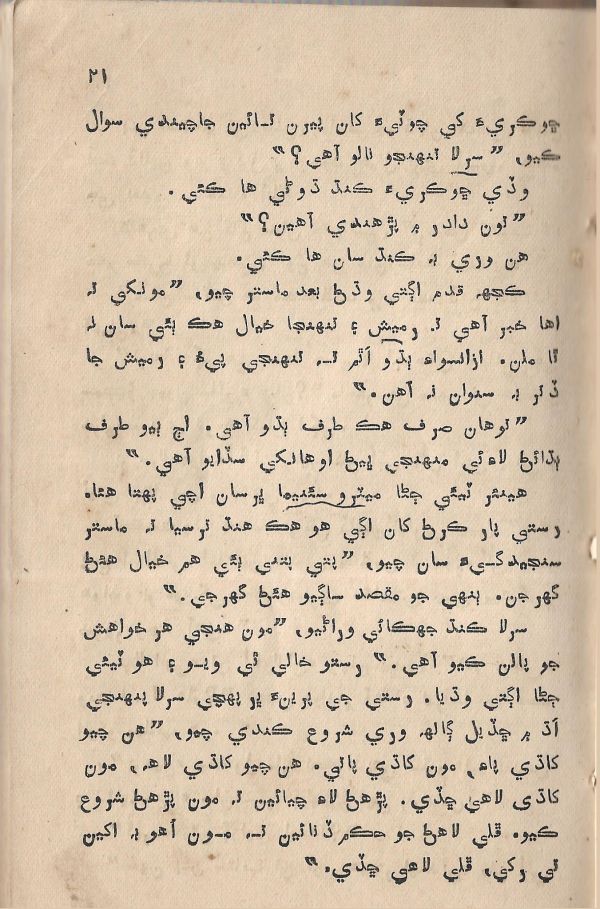 ۲۱
ڇوڪريءَ کي چوٽيءَ کان پيرن تائين جاچيندي سوال
ڪيو، ”سرلا تنهنجو نالو آهي؟“
وڏي ڇوڪريءَ ڪنڌ ڌوڻي ها ڪئي.
”تون دادر ۾ پڙهندي آهين؟“
هن وري بہ ڪنڌ سان ها ڪئي.
ڪجهہ قدم اڳتي وڌڻ بعد ماستر چيو، ”مونکي تہ
اها خبر آهي تہ رميش ۽ تنهنجا خيال هڪ ٻئي سان نہ
ٿا ملن. ازانسواءِ ٻڌو اٿم تہ تنهنجي پيءُ ۽ رميش جا
ڏنر بہ سنوان نہ آهن.“
”توهان صرف هڪ طرف ٻڌو آهي. اڄ ٻيو طرف
ٻڌائڻ لاءِ ئي منهنجي ڀيڻ اوهانکي سڏايو آهي.“
هينئر ٽيئي ڄڻا ميٽرو سئنيما ڀرسان اچي پهتا هئا.
رستي پار ڪرڻ کان اڳي هو هڪ هنڌ ترسيا تہ ماستر
سنجيدگيءَ سان چيو، ”پتي پتني ٻئي هم خيال هئڻ
گهرجن. ٻنهي جو مقصد ساڳيو هئڻ گهرجي.“
سرلا ڪنڌ جهڪائي وراڻيو، ”مون هنجي هر خواهش
جو پالن ڪيو آهي.“ رستو خالي ٿي ويو ۽ هو ٽيئي
ڄڻا اڳتي وڌيا. رستي جي پرينءَ ڀر پهچي سرلا پنهنجي
اڌ ۾ ڇڏيل ڳالهہ وري شروع ڪندي چيو، ”هن چيو
کاڌي پاءِ، مون کاڌي پاتي. هن چيو کاڌي لاهہ، مون
کاڌي لاهي ڇڏي. پڙهڻ لاءِ چيائين تہ مون پڙهڻ شروع
ڪيو. ڦلي لاهڻ جو حڪم ڏنائين تہ مون اهو بہ اکين
تي رکي، ڦلي لاهي ڇڏي.“